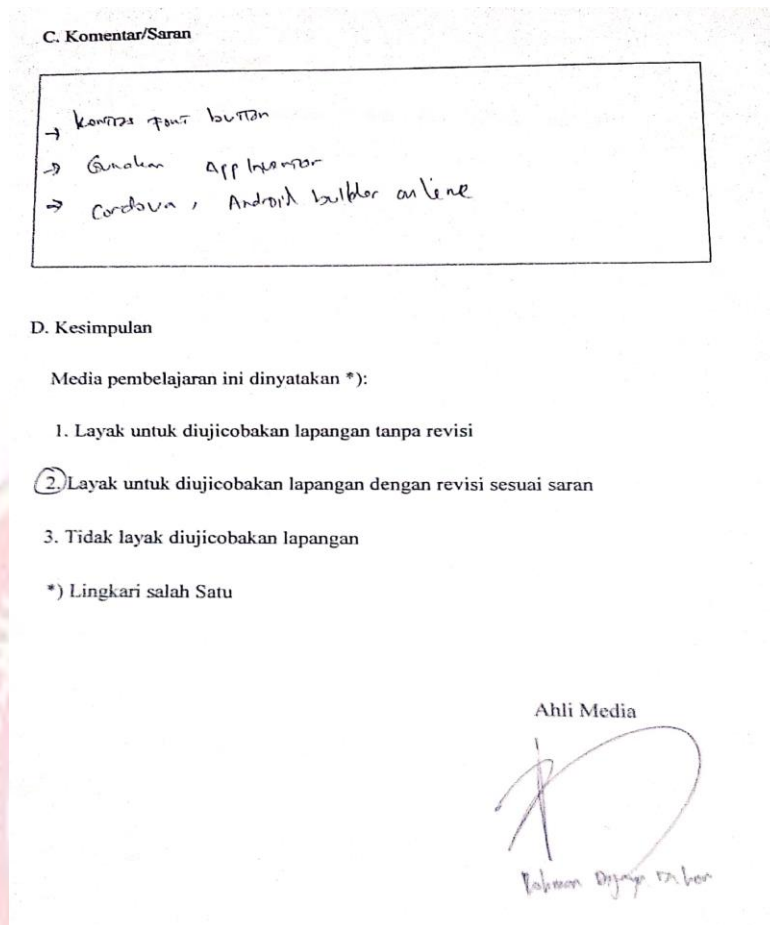 C. Komentar/Saran
→ Kontras font button
→ Gunakan App Inventor
→ Cordova, Android builder online
D. Kesimpulan
Media pembelajaran ini dinyatakan *):
1. Layak untuk diujicobakan lapangan tanpa revisi
2. Layak untuk diujicobakan lapangan dengan revisi sesuai saran
3. Tidak layak diujicobakan lapangan
*) Lingkari salah Satu
Ahli Media